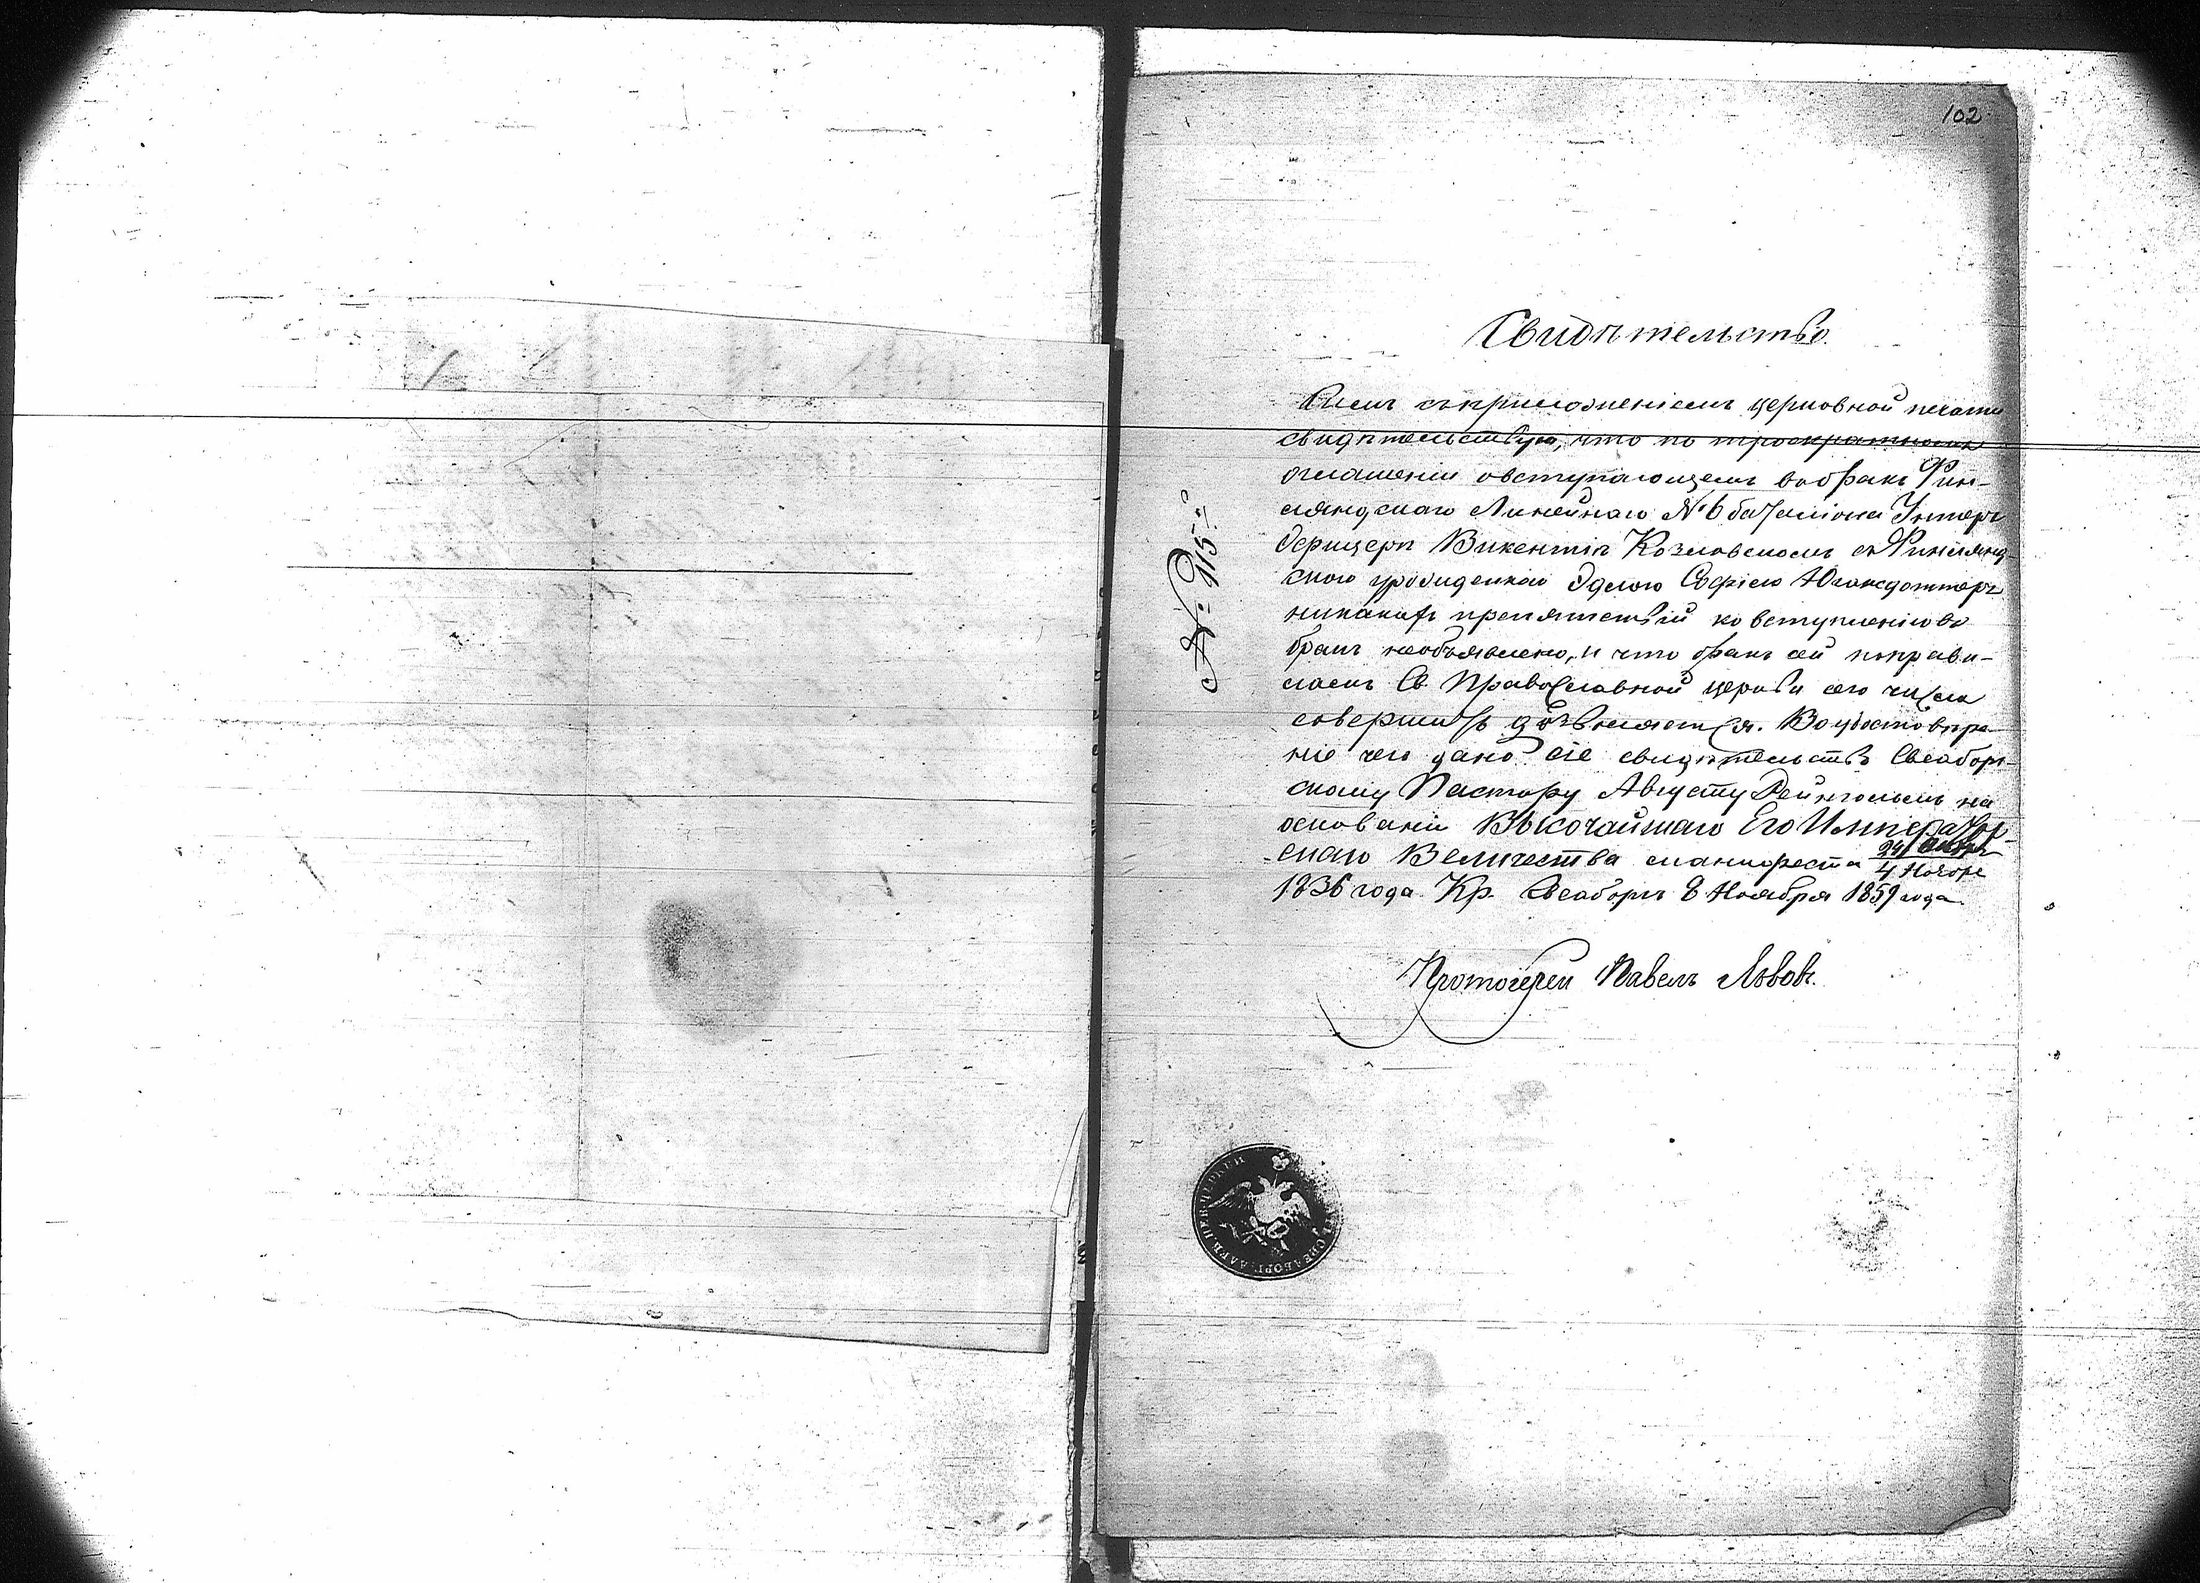 102
Свидѣтельство.
№ 115
Симъ съ приложеніемъ церковной печати
свидѣтельствую, что по троекратномъ
оглашеніи о вступающемъ въ бракъ Фин-
ляндскаго Линейнаго № 6 баталіона Унтеръ
Офицерѣ Викентіѣ Козловскомъ съ Финлянд
скою уроженкою Эдлою Софіею Югансдоттеръ
никакихъ препятствій ко вступленію въ
бракъ необъявлено, и что бракъ сей по прави-
ламъ Св. Православной церкви сего числа
совершить дозволяется. Во удостовѣре-
ніе чего дано сіе свидѣтельство Свеаборг-
скому Пастору Августу на
основаніи Высочайшаго Его Император-
скаго Величества манифеста 24 Октяб
4 Ноября
1836 года. Кр. Свеаборгъ 8 Ноября 1859 года
Протоіерей Павелъ Львовъ.